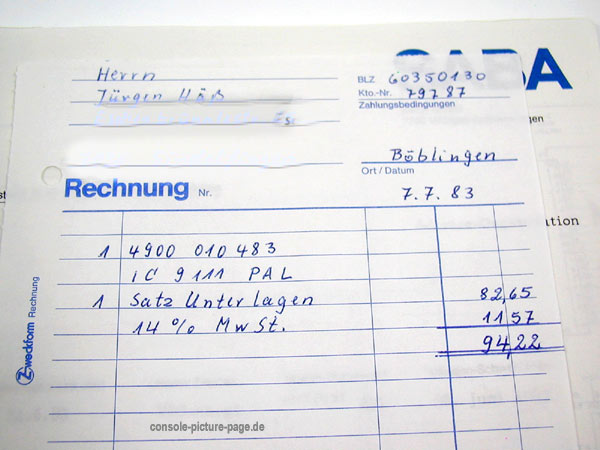 SABA
Herrn
Jürgen Höß
BLZ 60350130
Kto.-Nr. 79787
Zahlungsbedingungen
Böblingen
Ort / Datum
7.7.83
Rechnung Nr.
1 4900 010 483
iC 9111 PAL
1 Satz Unterlagen 82,65
14% MwSt. 11 57
94,22
Zweckform Rechnung
console-picture-page.de